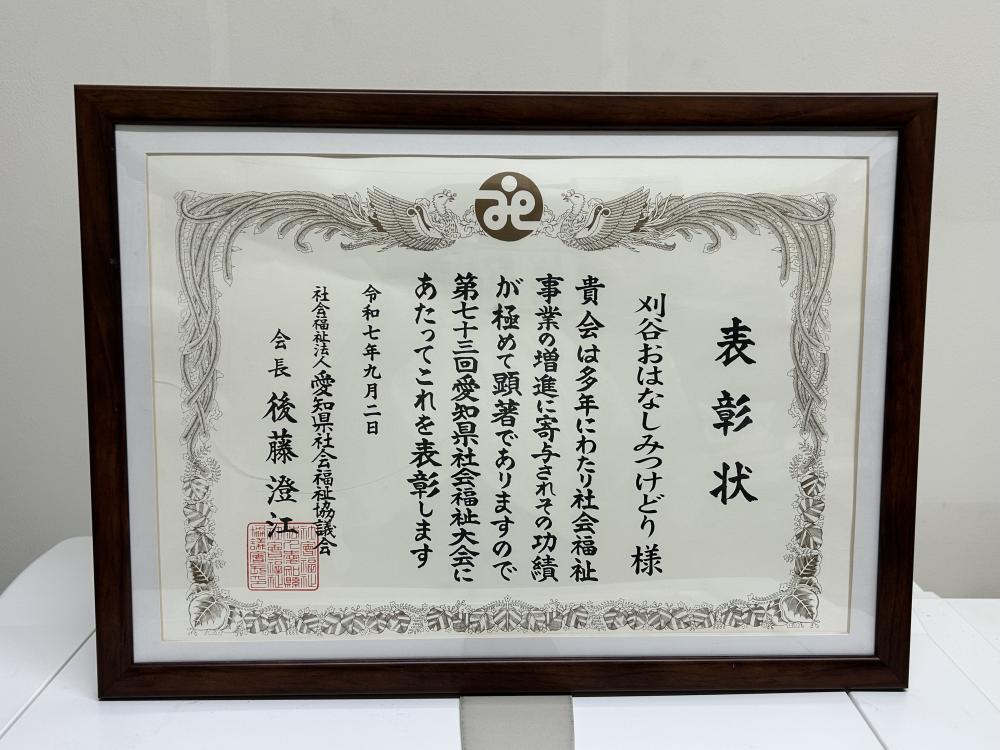 表彰状
刈谷おはなしみつけどり 様
貴会は多年にわたり社会福祉
事業の増進に寄与されその功績
が極めて顕著でありますので
第七十三回愛知県社会福祉大会に
あたってこれを表彰します
令和七年九月二日
社会福祉法人 愛知県社会福祉協議会
会長 後藤澄江